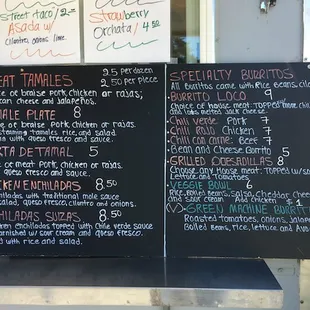 Street taco / 2.00
Asada w/
cilantro, onions, limes
Strawberry
Horchata / 4.50
EAT TAMALES 25 per dozen
2.50 per piece
e or braise pork, chicken or rajas;
can cheese and jalapeños.
MALE PLATE 8
ce of braise pork, chicken or rajas,
teaming tamales, rice, and salad.
with queso fresco and sauce.
RTA DE TAMAL 5
of meat: pork chicken or rajas.
queso fresco and sauce.
CKEN ENCHILADAS 8.50
enchiladas with traditional mole sauce
salad, queso fresco, cilantro and onions.
HILADAS SUIZAS 8.50
ken enchiladas topped with Chile Verde sauce
Garnished w/ sour cream and queso fresco.
d with rice and salad.
SPECIALTY BURRITOS
All burritos come with Rice, beans, cil
BURRITO LOCO 9
Choice of house meat topped
and lots melted Jack cheese
Chili Verde: Pork 7
Chili Rojo: Chicken 7
Chili con carne: Beef 7
Bean and Cheese Burrito 5
GRILLED QUESADILLAS 8
Choose any House meat, topped w/so
Lettuce and Tomatoes.
VEGGIE BOWL 6
Rice, Boiled beans, salsa, cheddar chee
and sour cream Add chicken $1
(V) GREEN MACHINE BURRIT
Roasted tomatoes, onions, jal
Boiled beans, rice, lettuce and Avo